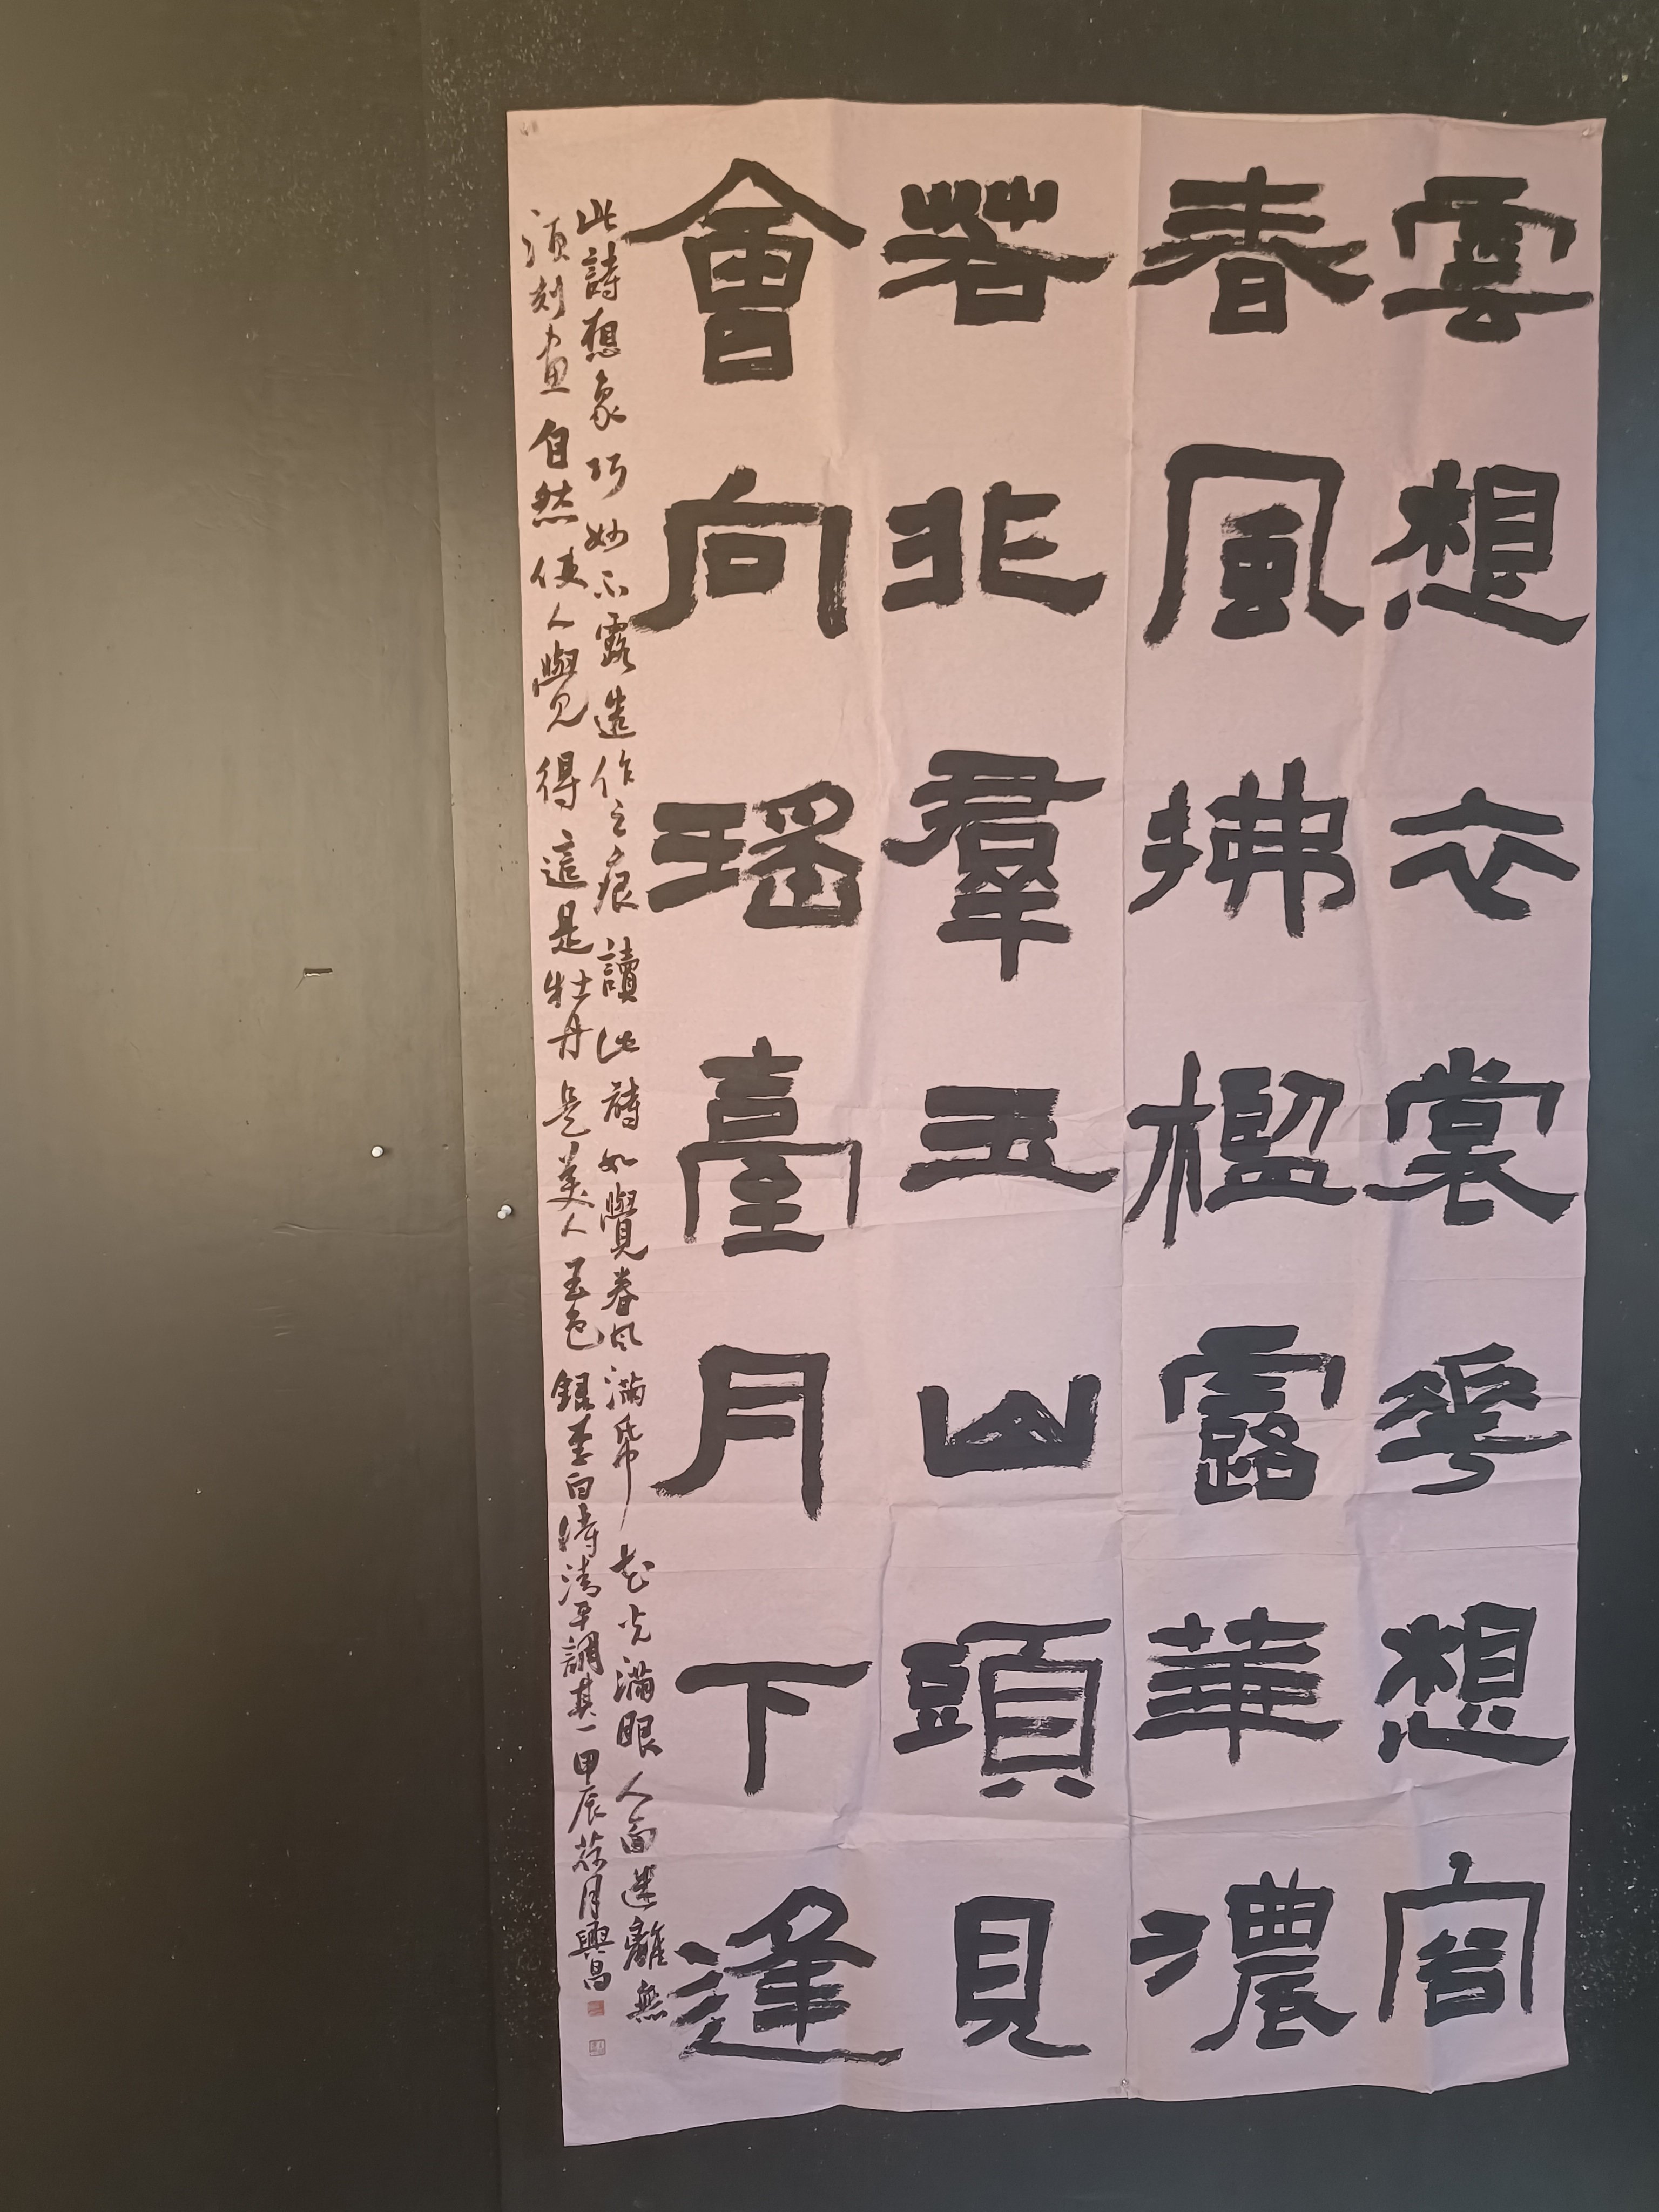 雲想衣裳花想容
春風拂檻露華濃
若非羣玉山頭見
會向瑤臺月下逢
此詩想象巧妙不露造作之痕讀此詩如覺春風滿紙花光滿眼人面迷離無
須刻畫自然使人覺得這是牡丹是美人玉色錄李白詩清平調其一甲辰荷月興昌